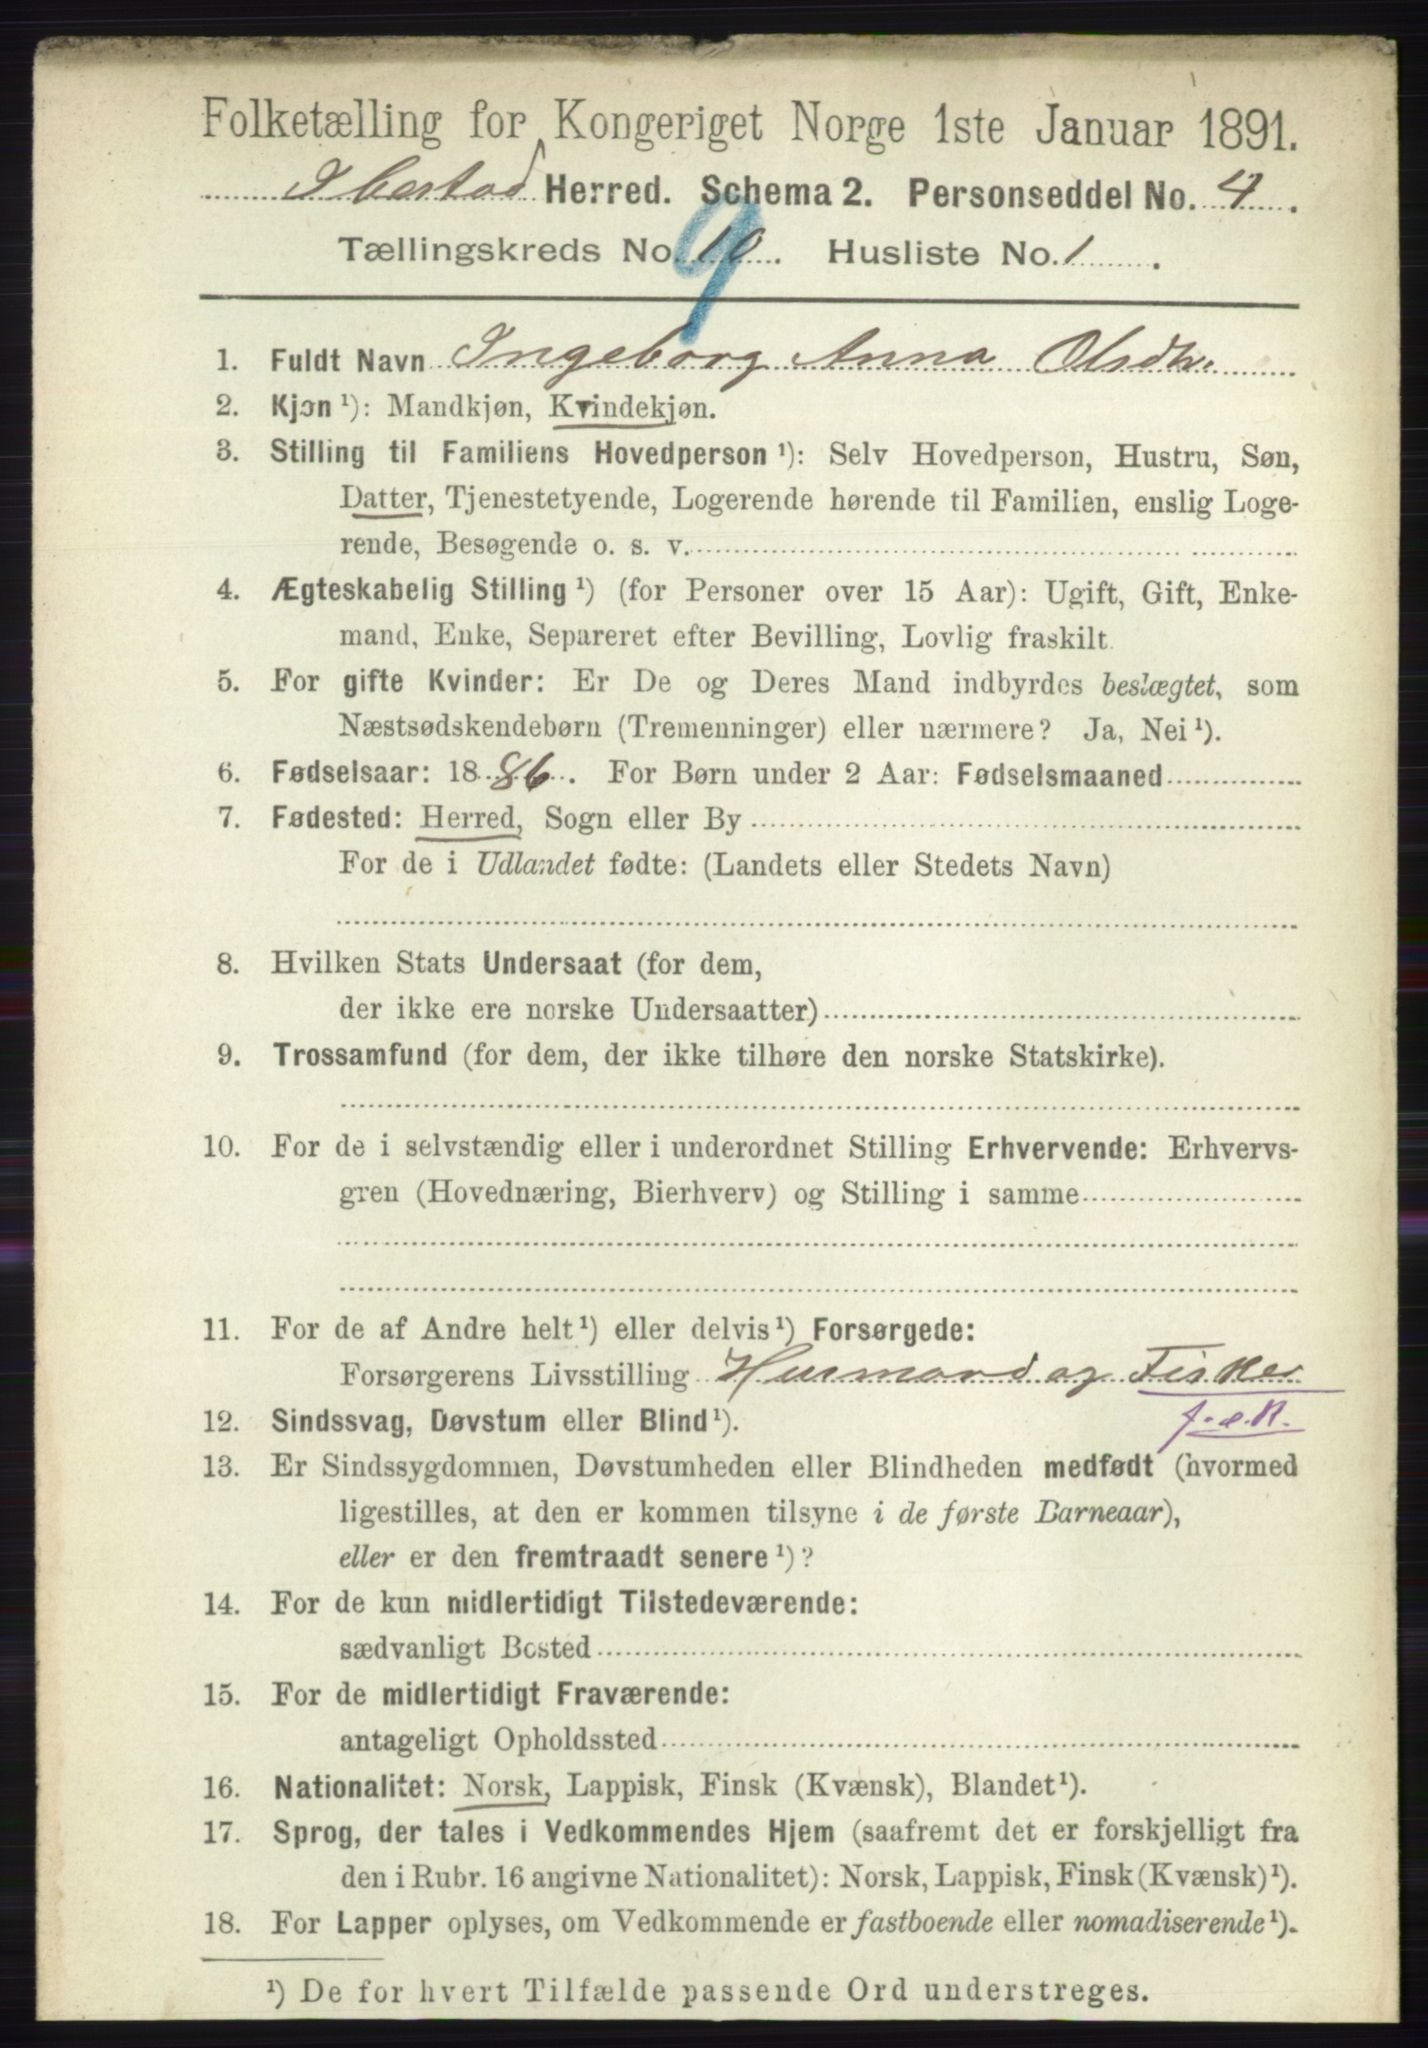 Folketælling for Kongeriget Norge 1ste Januar 1891.
Ibestad Herred. Schema 2. Personseddel No. 4.
Tællingskreds No. 10. Husliste No. 1.
9
1. Fuldt Navn Ingeborg Anna Olsdtr.
2. Kjøn ¹): Mandkjøn, Kvindekjøn.
3. Stilling til Familiens Hovedperson ¹): Selv Hovedperson, Hustru, Søn,
Datter, Tjenestetyende, Logerende hørende til Familien, enslig Loge-
rende, Besøgende o. s. v.
4. Ægteskabelig Stilling ¹) (for Personer over 15 Aar): Ugift, Gift, Enke-
mand, Enke, Separeret efter Bevilling, Lovlig fraskilt.
5. For gifte Kvinder: Er De og Deres Mand indbyrdes beslægtet, som
Næstsødskendebørn (Tremenninger) eller nærmere? Ja, Nei ¹).
6. Fødselsaar: 1886. For Børn under 2 Aar: Fødselsmaaned
7. Fødested: Herred, Sogn eller By
For de i Udlandet fødte: (Landets eller Stedets Navn)
8. Hvilken Stats Undersaat (for dem,
der ikke ere norske Undersaatter)
9. Trossamfund (for dem, der ikke tilhøre den norske Statskirke).
10. For de i selvstændig eller i underordnet Stilling Erhvervende: Erhvervs-
gren (Hovednæring, Bierhverv) og Stilling i samme
11. For de af Andre helt ¹) eller delvis ¹) Forsørgede:
Forsørgerens Livsstilling Husmand og Fisker
f.e.R.
12. Sindssvag, Døvstum eller Blind ¹).
13. Er Sindssygdommen, Døvstumheden eller Blindheden medfødt (hvormed
ligestilles, at den er kommen tilsyne i de første Barneaar),
eller er den fremtraadt senere ¹)?
14. For de kun midlertidigt Tilstedeværende:
sædvanligt Bosted
15. For de midlertidigt Fraværende:
antageligt Opholdssted
16. Nationalitet: Norsk, Lappisk, Finsk (Kvænsk), Blandet ¹).
17. Sprog, der tales i Vedkommendes Hjem (saafremt det er forskjelligt fra
den i Rubr. 16 angivne Nationalitet): Norsk, Lappisk, Finsk (Kvænsk) ¹).
18. For Lapper oplyses, om Vedkommende er fastboende eller nomadiserende ¹).
¹) De for hvert Tilfælde passende Ord understreges.